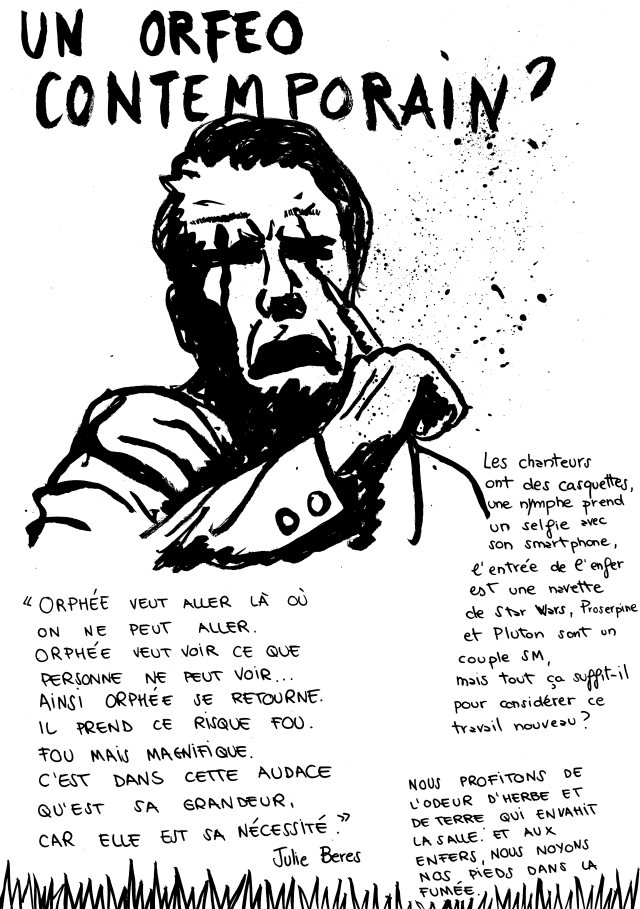 UN ORFEO
CONTEMPORAIN?
Les chanteurs
ont des casquettes,
une nymphe prend
un selfie avec
son smartphone,
l'entrée de l'enfer
est une navette
de Star Wars, Proserpine
et Pluton sont un
couple SM,
mais tout ça suffit-il
pour considérer ce
travail nouveau?
“ORPHÉE VEUT ALLER LÀ OÙ
ON NE PEUT ALLER.
ORPHÉE VEUT VOIR CE QUE
PERSONNE NE PEUT VOIR...
AINSI ORPHÉE SE RETOURNE.
IL PREND CE RISQUE FOU.
FOU MAIS MAGNIFIQUE.
C'EST DANS CETTE AUDACE
QU'EST SA GRANDEUR,
CAR ELLE EST SA NÉCESSITÉ.”
Julie Beres
NOUS PROFITONS DE
L'ODEUR D'HERBE ET
DE TERRE QUI ENVAHIT
LA SALLE. ET AUX
ENFERS, NOUS NOYONS
NOS PIEDS DANS LA
FUMÉE.